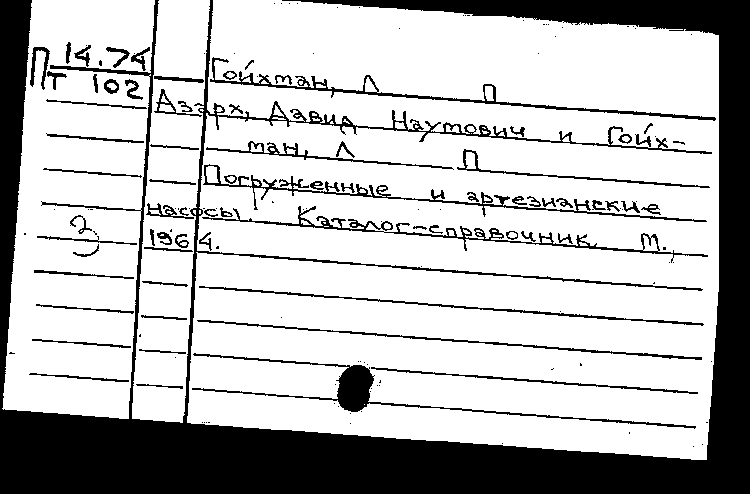 П 14.74
Т 102
Гойхтан, Л П
Азарх, Давид Наумович и Гойх-
тан, Л П
Погруженные и артезианские
насосы. Каталог-справочник М.,
1964.
З